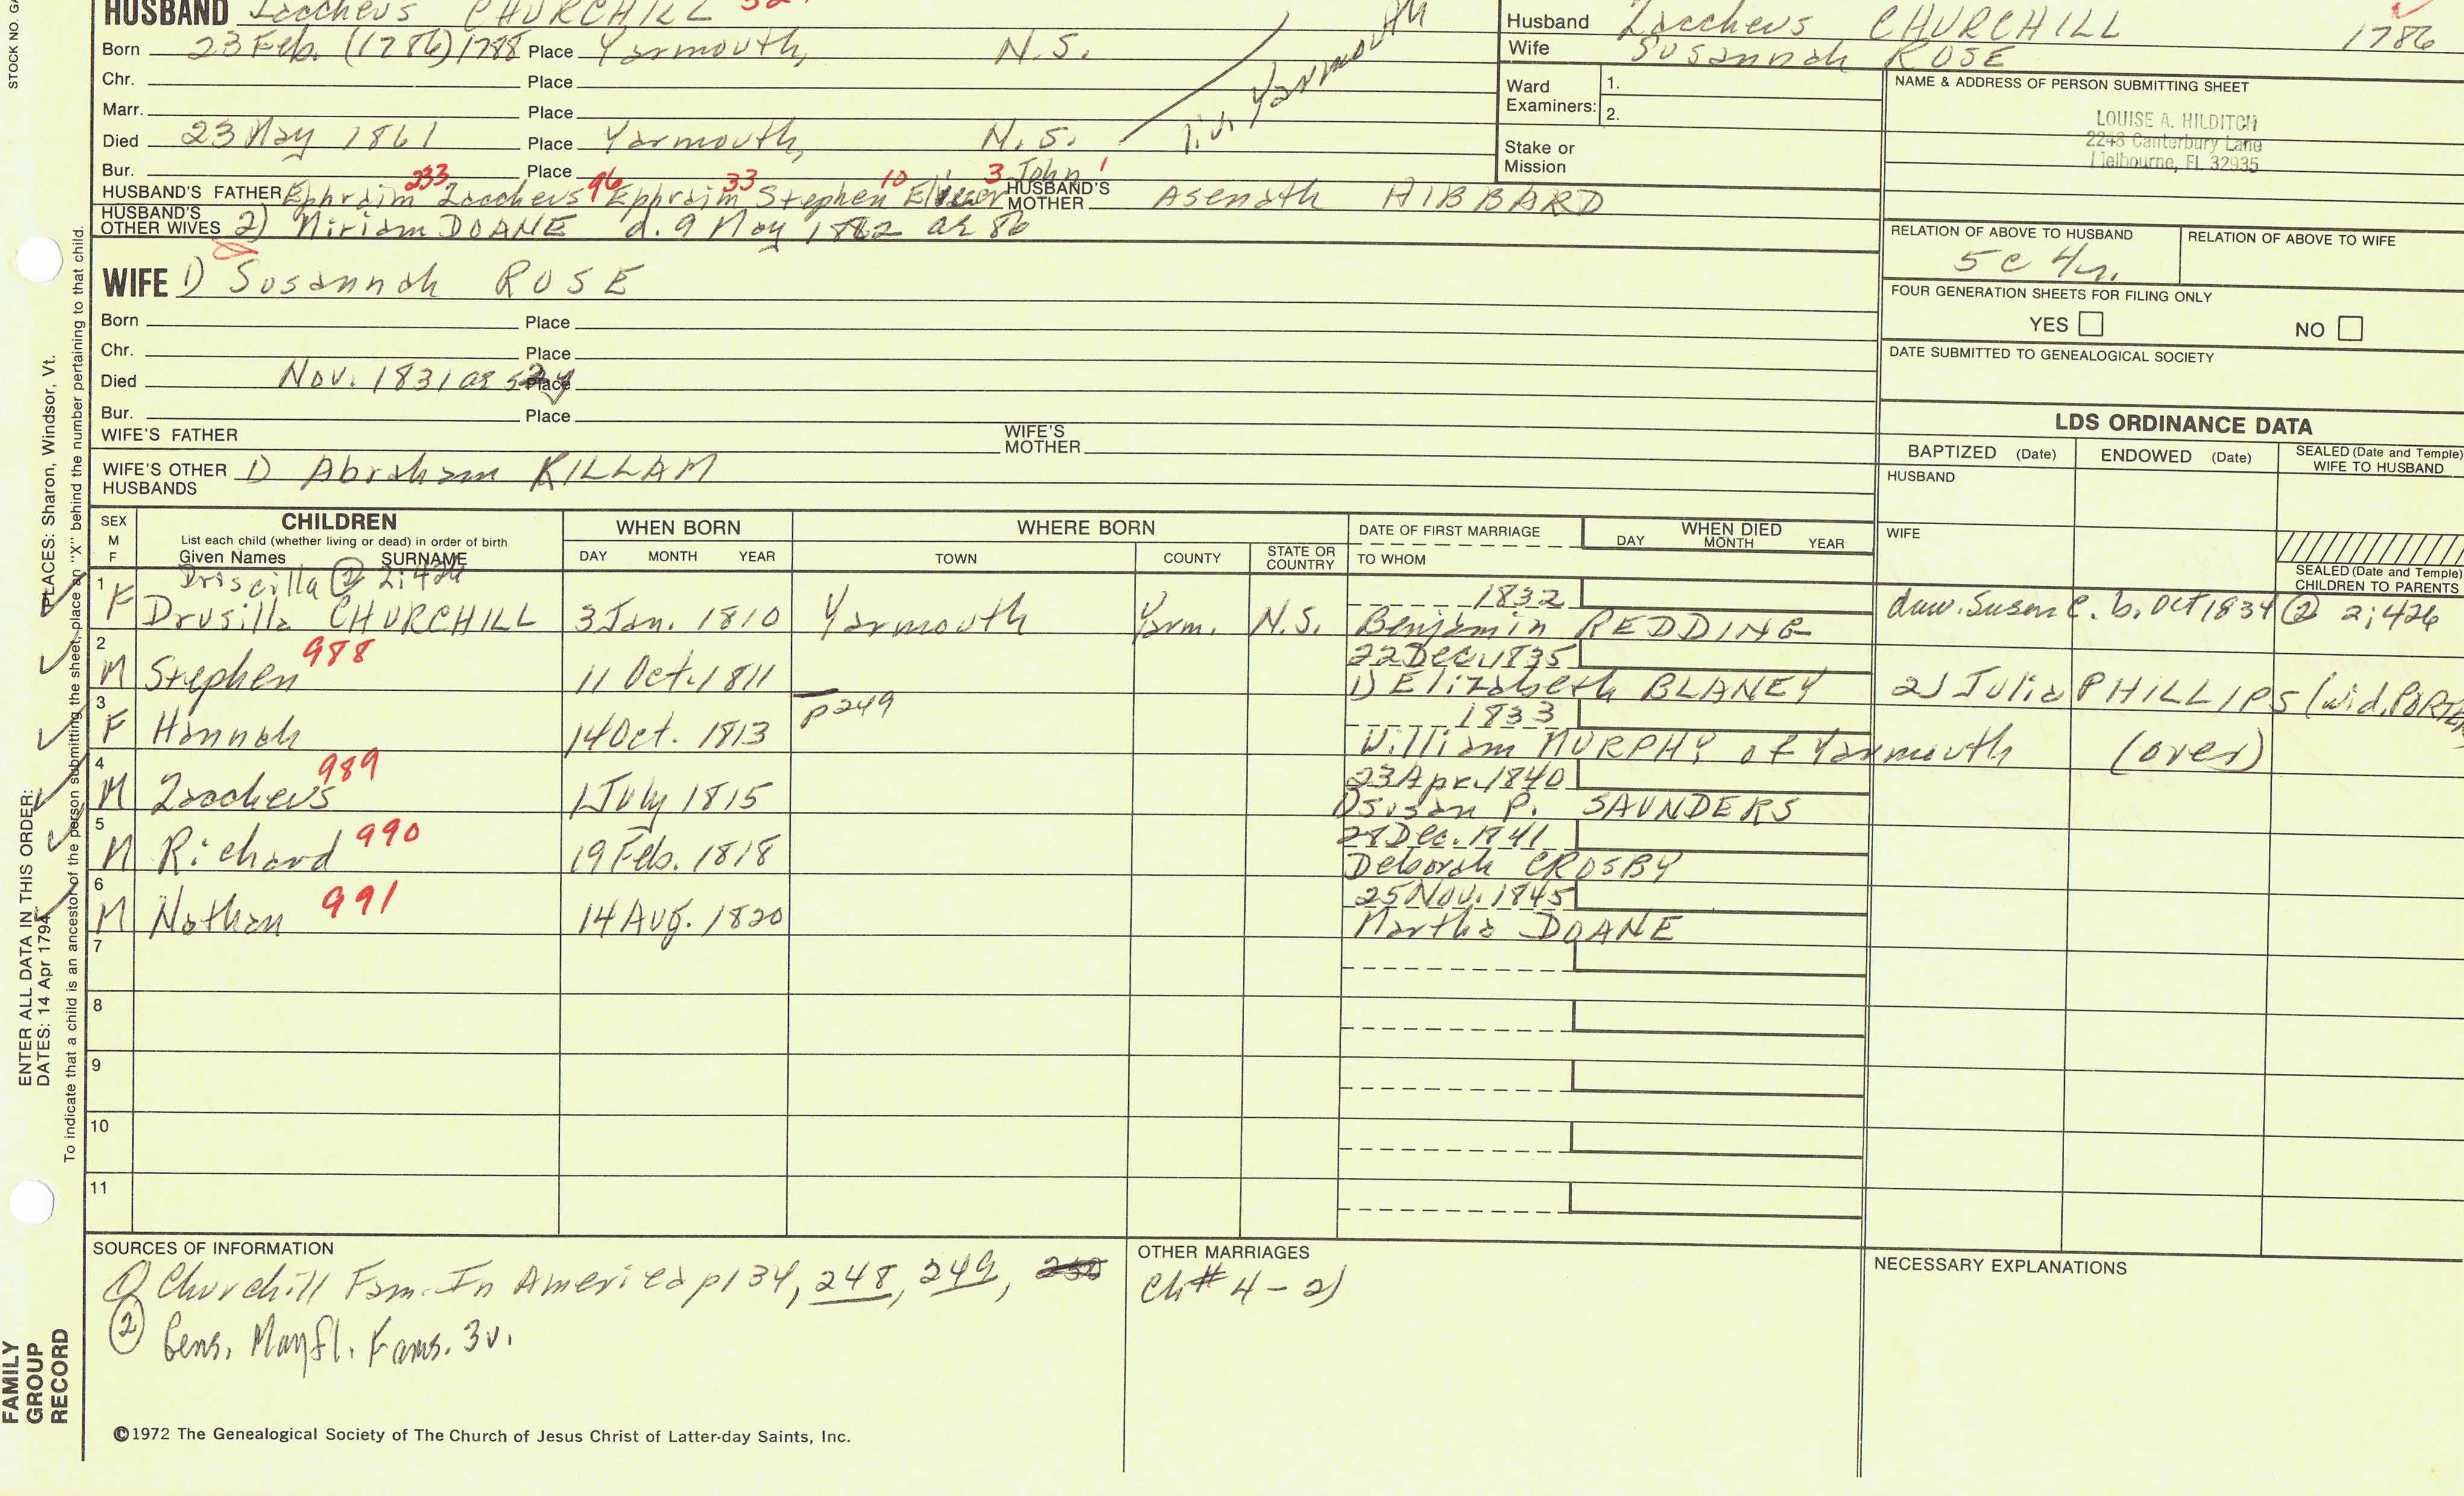 STOCK NO.
HUSBAND Zaccheus CHURCHILL
Born 23 Feb. (1786) 1788 Place Yarmouth, N.S.
Chr. Place
Marr. Place
Died 23 May 1861 Place Yarmouth, N.S.
liv. Yarmouth
Bur. Place
HUSBAND'S FATHER Ephraim 233 Zaccheus 96 Ephraim 33 Stephen 10 3 John 1
HUSBAND'S MOTHER Asenath HIBBARD
HUSBAND'S OTHER WIVES 2) Miriam DOANE d. 9 May 1862 ae 86
Husband Zaccheus CHURCHILL 1786
Wife Susannah ROSE
Ward Examiners: 1.
2.
Stake or Mission
NAME & ADDRESS OF PERSON SUBMITTING SHEET
LOUISE A. HILDITCH
2248 Canterbury Lane
Melbourne, FL 32935
RELATION OF ABOVE TO HUSBAND
5c 4r.
RELATION OF ABOVE TO WIFE
FOUR GENERATION SHEETS FOR FILING ONLY
YES NO
DATE SUBMITTED TO GENEALOGICAL SOCIETY
WIFE 1) Susannah ROSE
Born Place
Chr. Place
Died Nov. 1831 ae Place
Bur. Place
WIFE'S FATHER WIFE'S MOTHER
WIFE'S OTHER HUSBANDS 1) Abraham KILLAM
LDS ORDINANCE DATA
BAPTIZED (Date) ENDOWED (Date) SEALED (Date and Temple) WIFE TO HUSBAND
HUSBAND
WIFE
SEALED (Date and Temple) CHILDREN TO PARENTS
SEX M F
CHILDREN
List each child (whether living or dead) in order of birth
Given Names SURNAME
WHEN BORN
DAY MONTH YEAR
WHERE BORN
TOWN COUNTY STATE OR COUNTRY
DATE OF FIRST MARRIAGE
TO WHOM
WHEN DIED
DAY MONTH YEAR
Driscilla @ 2:426
1 F Drusilla CHURCHILL 3 Jan. 1810 Yarmouth Yarm. N.S. 1832
Benjamin REDDING
daw. Susan C. b. Oct 1834 @ 2;426
2 M Stephen 988 11 Oct. 1811 22 Dec. 1835
1) Elizabeth BLANEY 2) Julia PHILLIPS (wid.
3 F Hannah 14 Oct. 1813 p249 1833
William MURPHY of Yarmouth (over)
4 M Zaccheus 989 1 July 1815 23 Apr. 1840
1) Susan P. SAUNDERS
5 M Richard 990 19 Feb. 1818 Dec. 1841
Deborah CROSBY
6 M Nathan 991 14 Aug. 1820 25 Nov. 1845
Martha DOANE
7
8
9
10
11
SOURCES OF INFORMATION
1) Churchill Fam. In America p134, 248, 249, 250
(2) Gens. Mayfl. Fams. 3v.
OTHER MARRIAGES
Ch# 4 - 2)
NECESSARY EXPLANATIONS
©1972 The Genealogical Society of The Church of Jesus Christ of Latter-day Saints, Inc.
ENTER ALL DATA IN THIS ORDER:
DATES: 14 Apr 1794 PLACES: Sharon, Windsor, Vt.
To indicate that a child is an ancestor of the person submitting the sheet, place an "X" behind the number pertaining to that child.
FAMILY GROUP RECORD